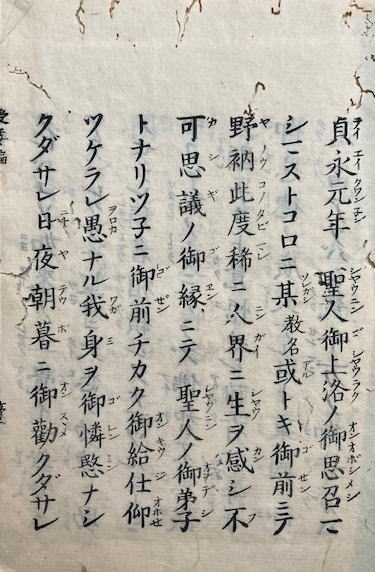 貞永元年 聖人御上洛ノ御思召マ
シマストコロニ某教名或トキ御前ニテ
野衲此度稀ニ人界ニ生ヲ感シ不
可思議ノ御縁ニテ 聖人ノ御弟子
トナリツ子ニ御前チカク御給仕仰
ツケラレ愚ナル我身ヲ御憐愍ナシ
クダサレ日夜朝暮ニ御勸クダサレ